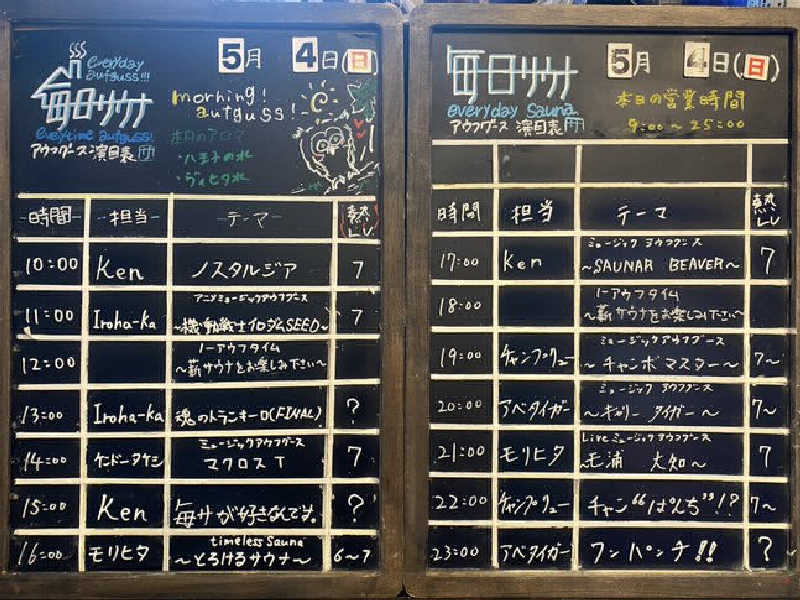 everyday
autguss!!!
毎日サウナ
everytime autguss!
アウフグース演目表
5月 4日(日)
morning!
autguss!
本日のアロマ
・八王子の水
・ヴィヒタ水
時間 担当 テーマ 熱Lv
10:00 Ken ノスタルジア 7
アニメミュージックアウフグース
11:00 Iroha-Ka ~機動戦士ガンダムSEED~ 7
ノーアウフタイム
12:00 ~薪サウナをお楽しみ下さい~
13:00 Iroha-Ka 魂のトランキーロ(FINAL) ?
ミュージックアウフグース
14:00 ケンドータケシ マクロスT 7
15:00 Ken 毎サが好きなんです。 ?
timeless Sauna
16:00 モリヒタ ~とろけるサウナ~ 6~7
毎日サウナ
everyday Sauna
アウフグース演目表
5月 4日(日)
本日の営業時間
9:00~25:00
時間 担当 テーマ 熱Lv
ミュージックアウフグース
17:00 Ken ~SAUNAR BEAVER~ 7
ノーアウフタイム
18:00 ~薪サウナをお楽しみ下さい~
ミュージックアウフグース
19:00 チャンプリュー ~チャンボマスター~ 7~
ミュージックアウフグース
20:00 アベタイガー ~キャリータイガー~ 7~
Liveミュージックアウフグース
21:00 モリヒタ ~毛浦 大知~ 7
22:00 チャンプリュー チャン"ぱんち"!? 7~
23:00 アベタイガー ワンパンチ!! ?